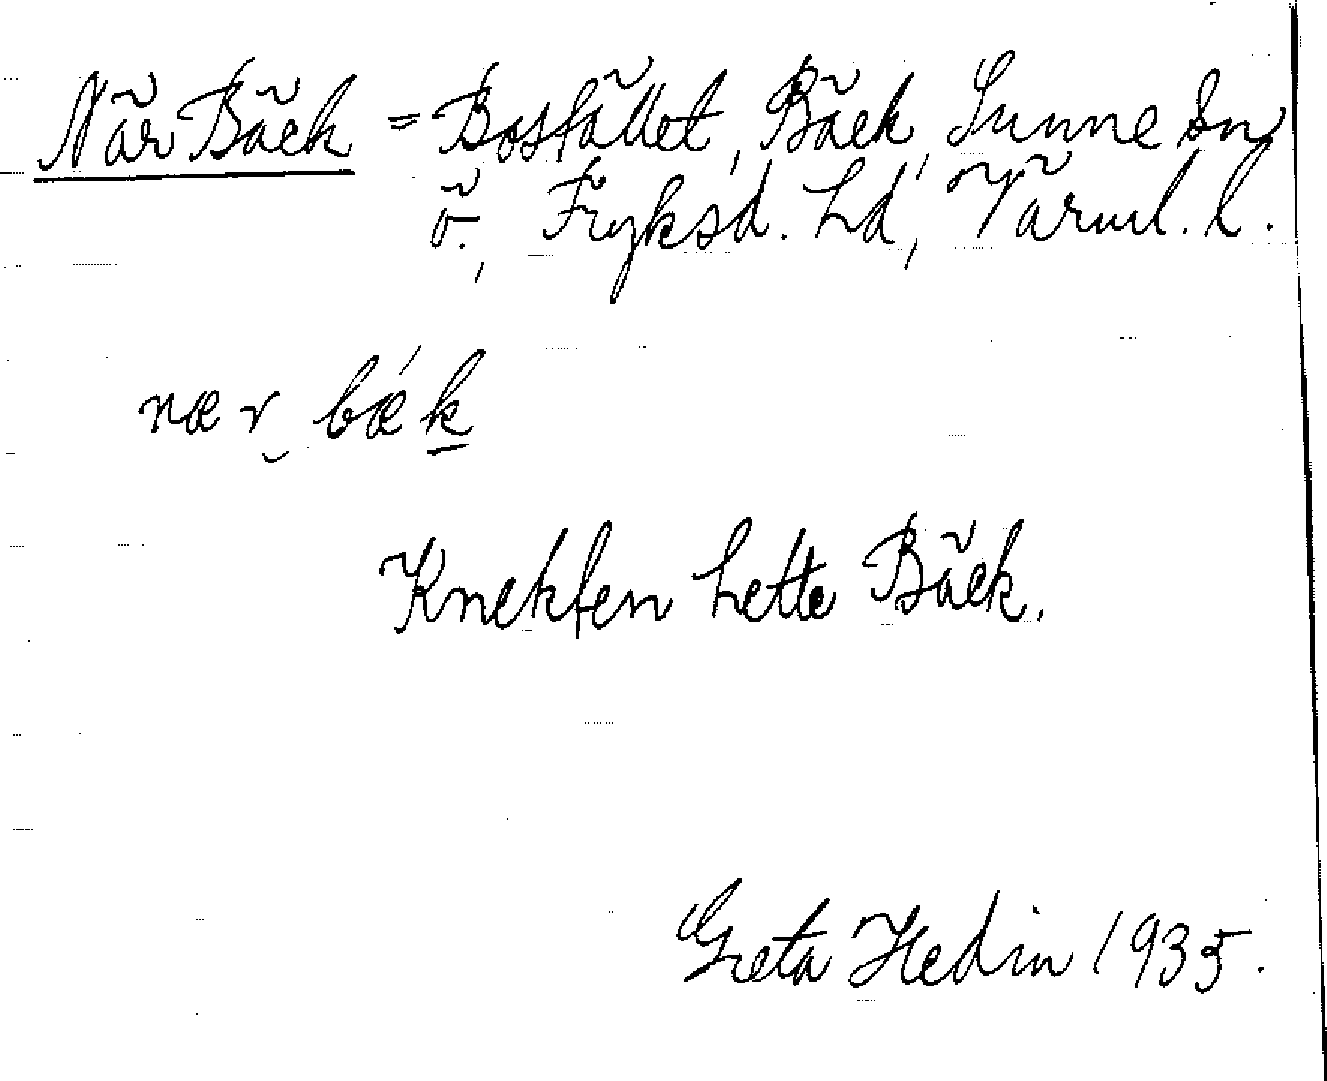 När Bäck = Bosfället, Bäck, Sunne sn,
ö., Fryksd. hd, Värml. l.
nær bæ´k
Knekten hette Bäck.
Greta Hedin 1935.